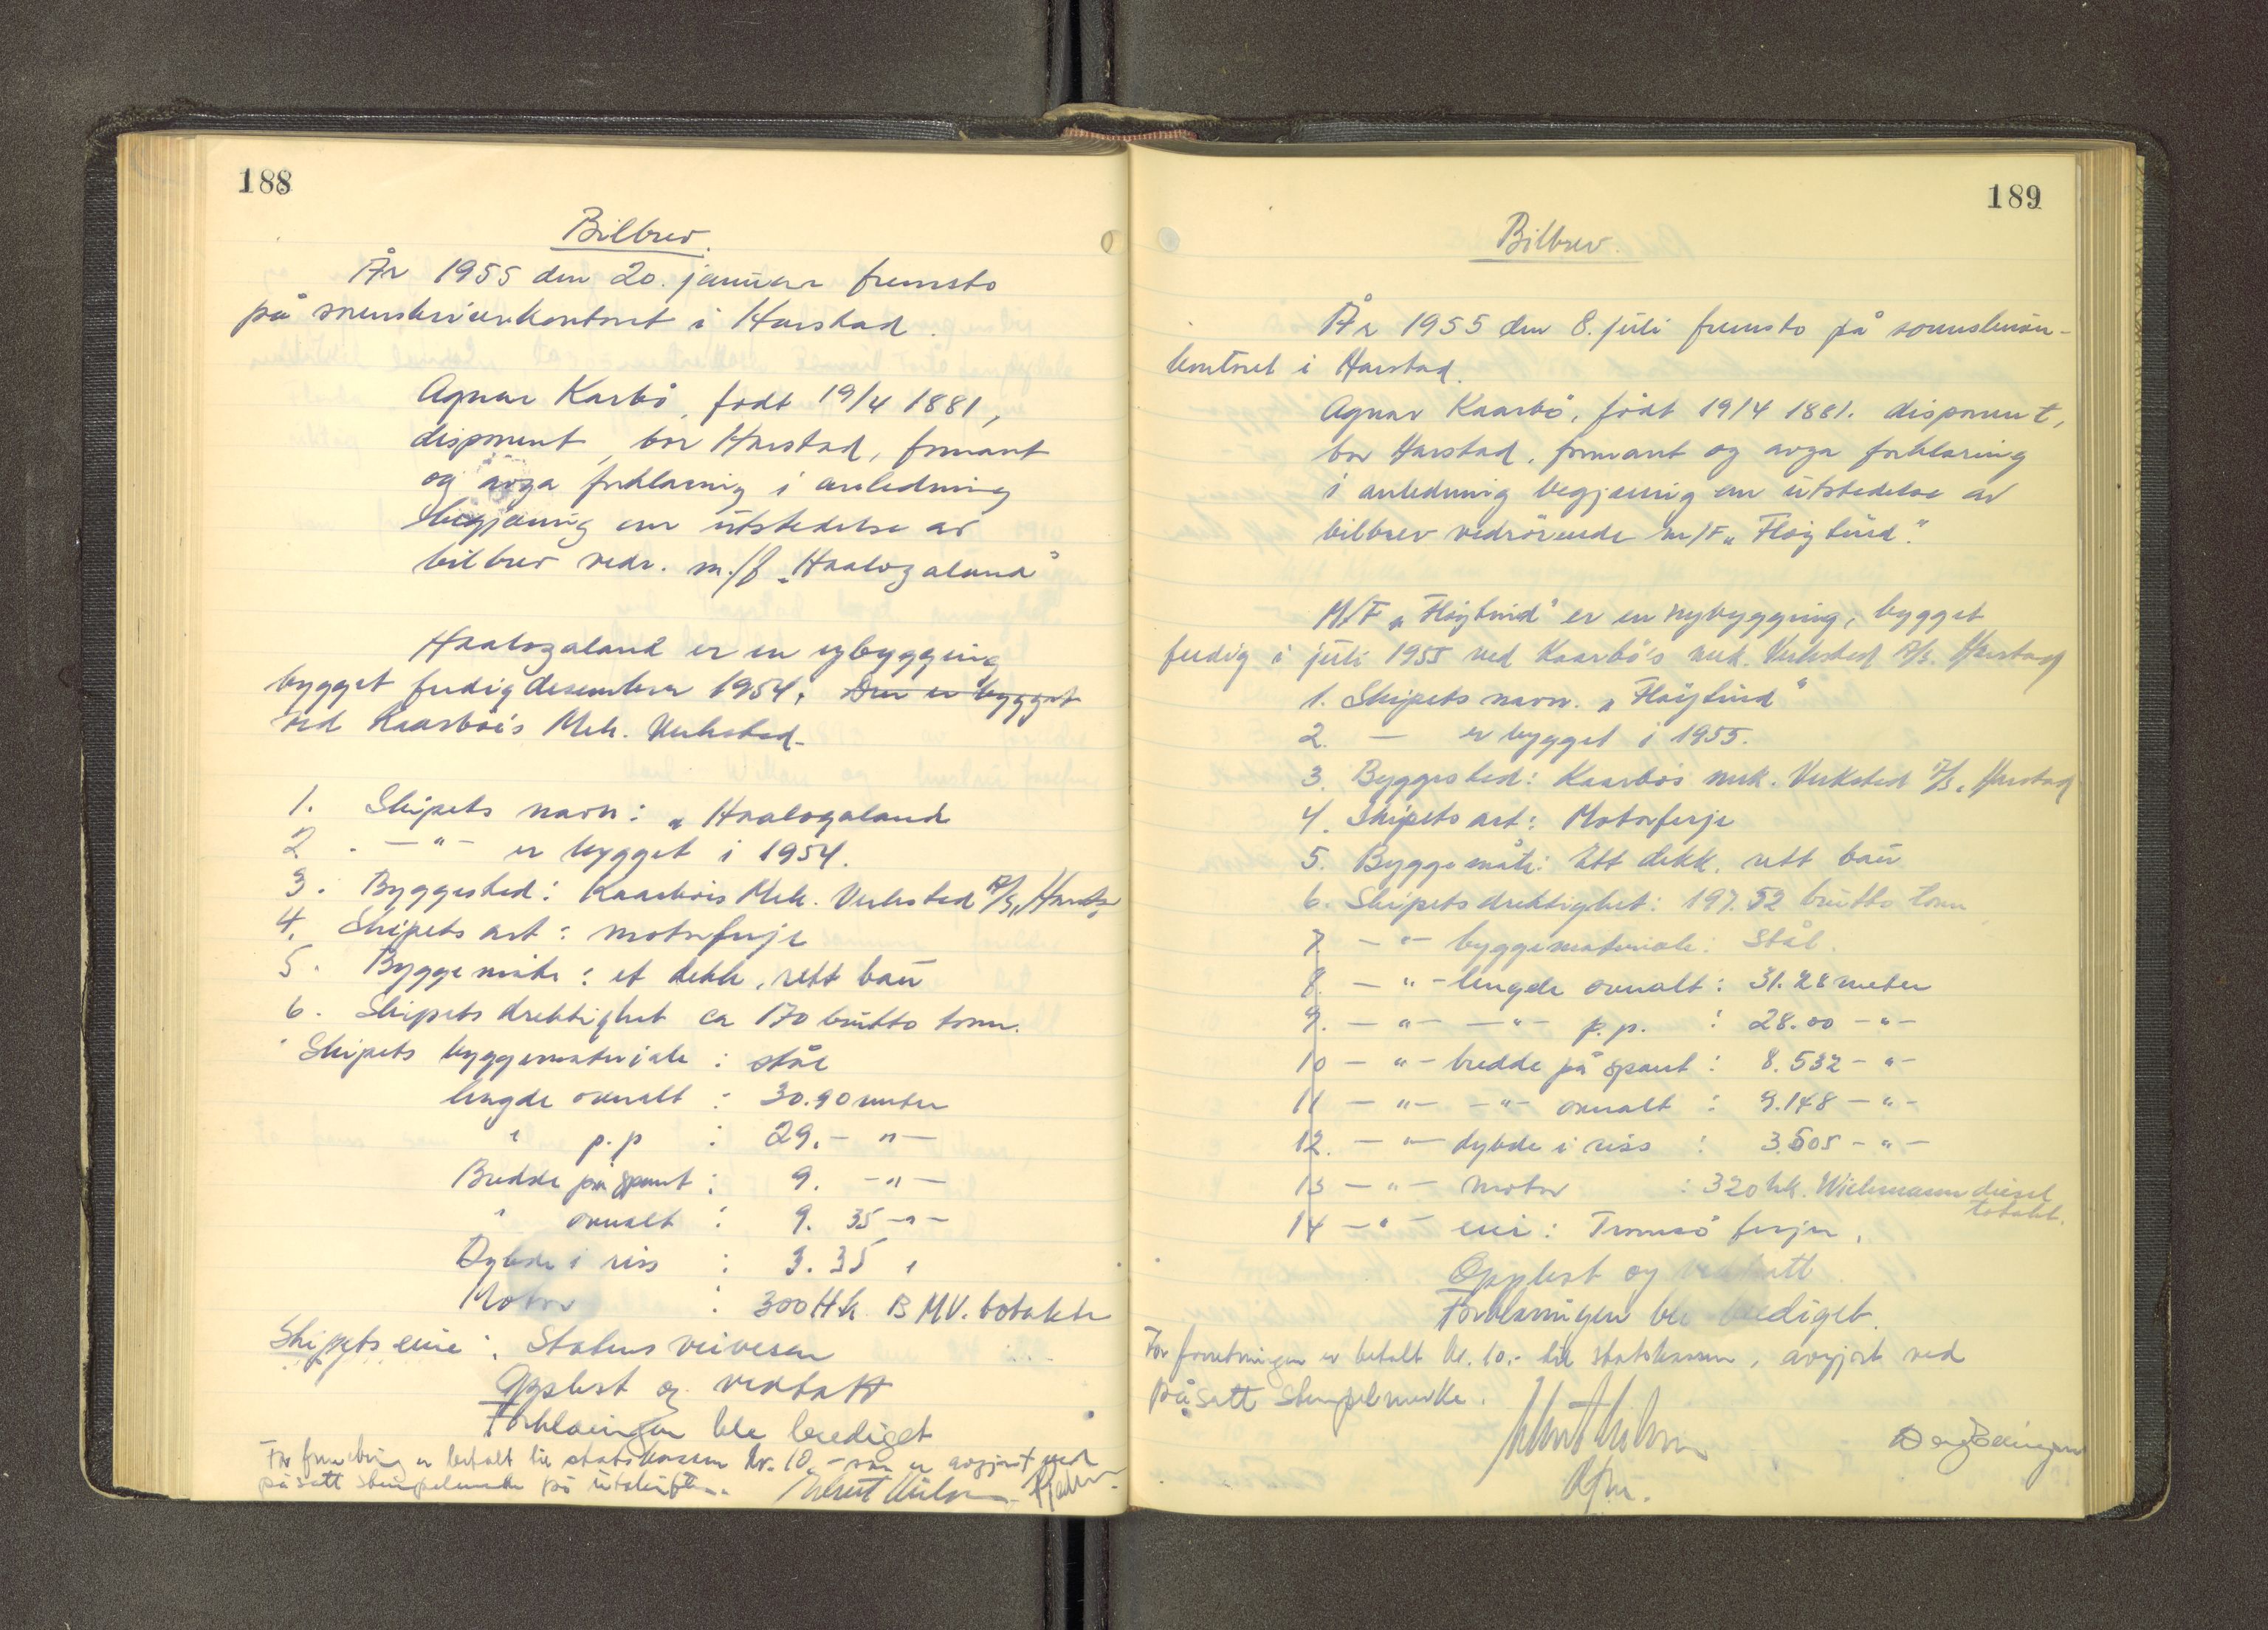 188
Bilbrev.
År 1955 den 20. januar fremsto
på sorenskriverkontoret i Harstad.
Agnar Karbö, födt 19/4 1881,
disponent, bor Harstad, formant
og avga forklaring i anledning
begjæring om utstedelse av
bilbrev vedr. m./f „Haalogaland"
Haalogaland er en nybygging
bygget ferdig desember 1954. Den er bygget
ved Kaarböi's Mek. Verksted.
1. Skipets navn: „Haalogaland
2. -"- er bygget i 1954.
3. Byggested: Kaarböis Mek. Verksted A/S, Harstad
4. Skipets art: motorferje
5. Byggemåte: et dekk, rett bau
6. Skipets drektighet ca 170 brutto tonn.
Skipets byggemateriale: stål
lengde overalt: 30.90 meter
" p.p : 29.- "-
Bredde på spant: 9. -"-
" overalt: 9. 35 -"-
Dybde i riss : 3. 35 "
Motor : 300 Hk. BMV. totakts
Skipets eier: Statens veivesen
Opplest og vedtatt
Forklaringen ble beediget
For forretning er betalt til statskassen kr. 10.- som er avgjort ved
påsatt stempelmerke på utskriften.
189
Bilbrev.
År 1955 den 8. juli fremsto på sorenskriver-
kontoret i Harstad.
Agnar Kaarbö, födt 19/4 1881. disponent,
bor Harstad, formant og avga forklaring
i anledning begjæring om utstedelse av
bilbrev vedrörende M/F „Flöjtind".
M/F „Flöjtind" er en nybygging, bygget
ferdig i juli 1955 ved Kaarbö's mek. Verksted A/S. Harstad
1. Skipets navn. „Flöjtind"
2. — er bygget i 1955.
3. Byggested: Kaarbös mek. Verksted A/S, Harstad
4. Skipets art: Motorferje
5. Byggemåte: Ett dekk, rett bau
6. Skipets drektighet: 197.52 brutto tonn
7. -"- byggemateriale: Stål.
8. -"- lengde overalt: 31.28 meter
9. -"- -"- p.p. : 28.00 -"-
10 -"- bredde på spant: 8.532 -"-
11 -"- -"- overalt : 9.148 -"-
12. -"- dybde i riss : 3.505 -"-
13 -"- motor : 320 hk. Wichmann diesel
totakt.
14 -"- eier: Tromsö ferjer.
Opplest og vedtatt
Forklaringen ble beediget.
For forretningen er betalt kr. 10.- til statskassen, avgjort ved
påsatt stempelmerke.